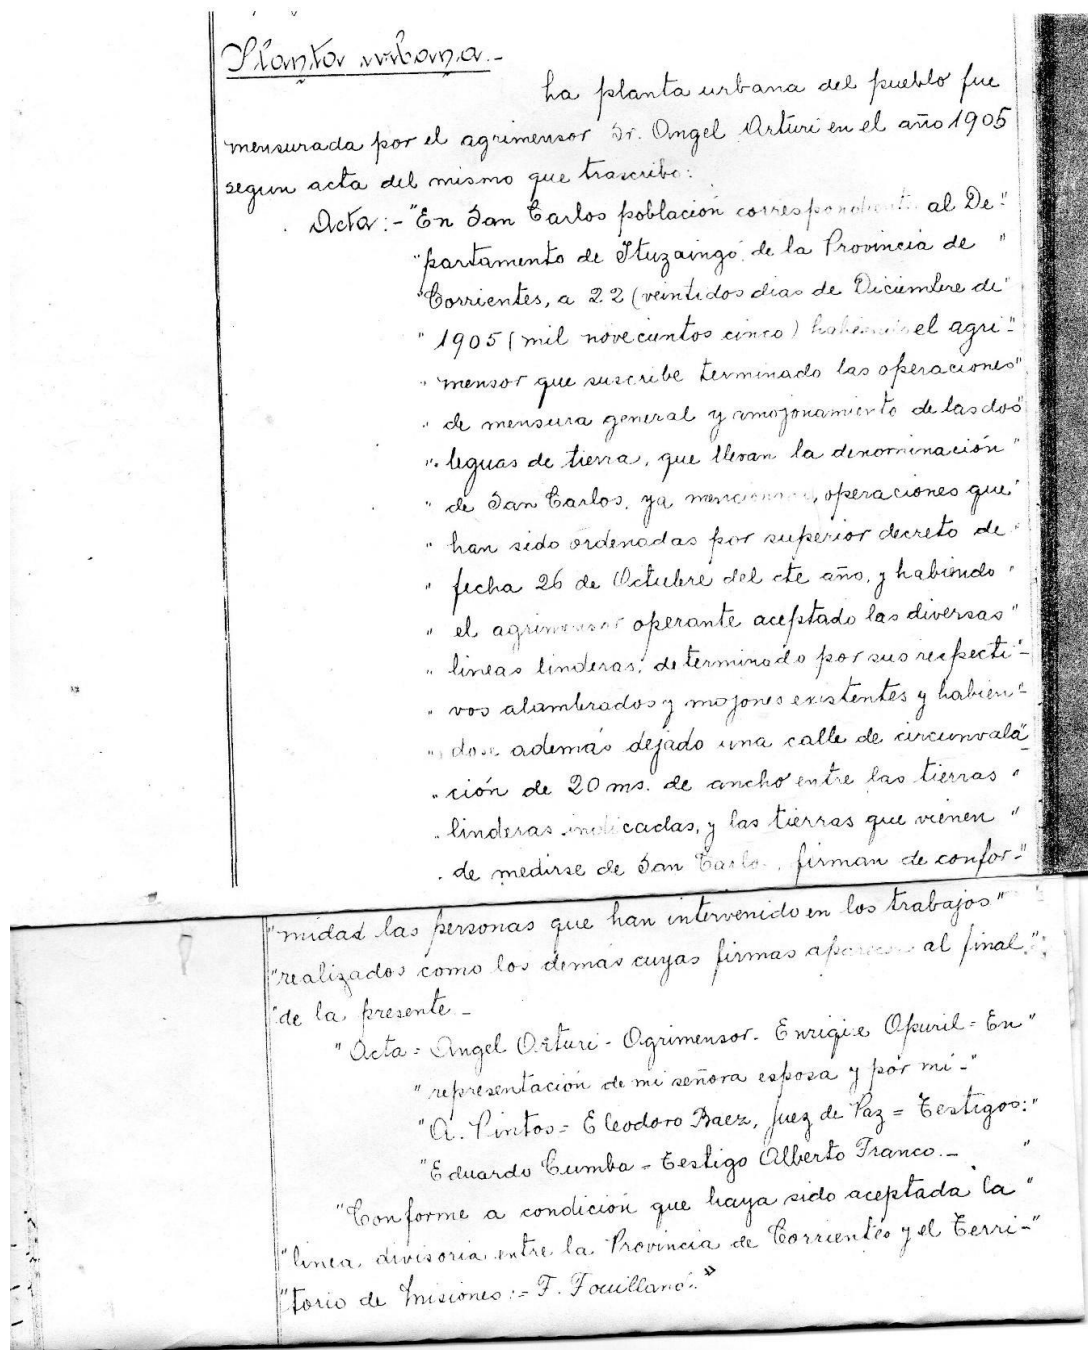 Planta urbana.-
La planta urbana del pueblo fue
mensurada por el agrimensor Sr. Angel Arturi en el año 1905
segun acta del mismo que trascribo:
Acta:- "En San Carlos población correspondiente al De-"
"partamento de Ituzaingó de la Provincia de "
"Corrientes, a 22 (veintidos dias de Diciembre de"
" 1905 (mil novecientos cinco) habiendo el agri-"
" mensor que suscribe terminado las operaciones"
" de mensura general y amojonamiento de las dos"
" leguas de tierra, que llevan la denominación "
" de San Carlos, ya operaciones que"
" han sido ordenadas por superior decreto de "
" fecha 26 de Octubre del cte año, y habiendo "
" el agrimensor operante aceptado las diversas"
" lineas linderas, determinado por sus respecti-"
" vos alambrados y mojones existentes y habien-"
" dose además dejado una calle de circunvala-"
" ción de 20 ms. de ancho entre las tierras "
" linderas indicadas, y las tierras que vienen "
" de medirse de San Carlos, firman de confor-"
"midad las personas que han intervenido en los trabajos"
"realizados como los demás cuyas firmas aparecen al final"
"de la presente -
" Acta = Angel Arturi - Agrimensor. Enriqie = En"
" representación de mi señora esposa y por mi -"
"A. Pintos = Eleodoro Baez, juez de Paz = Testigos:"
"Eduardo Cumba = Testigo Alberto Franco.- "
"Conforme a condición que haya sido aceptada la "
"linea divisoria entre la Provincia de Corrientes y el Terri-"
"torio de Misiones:= F. "